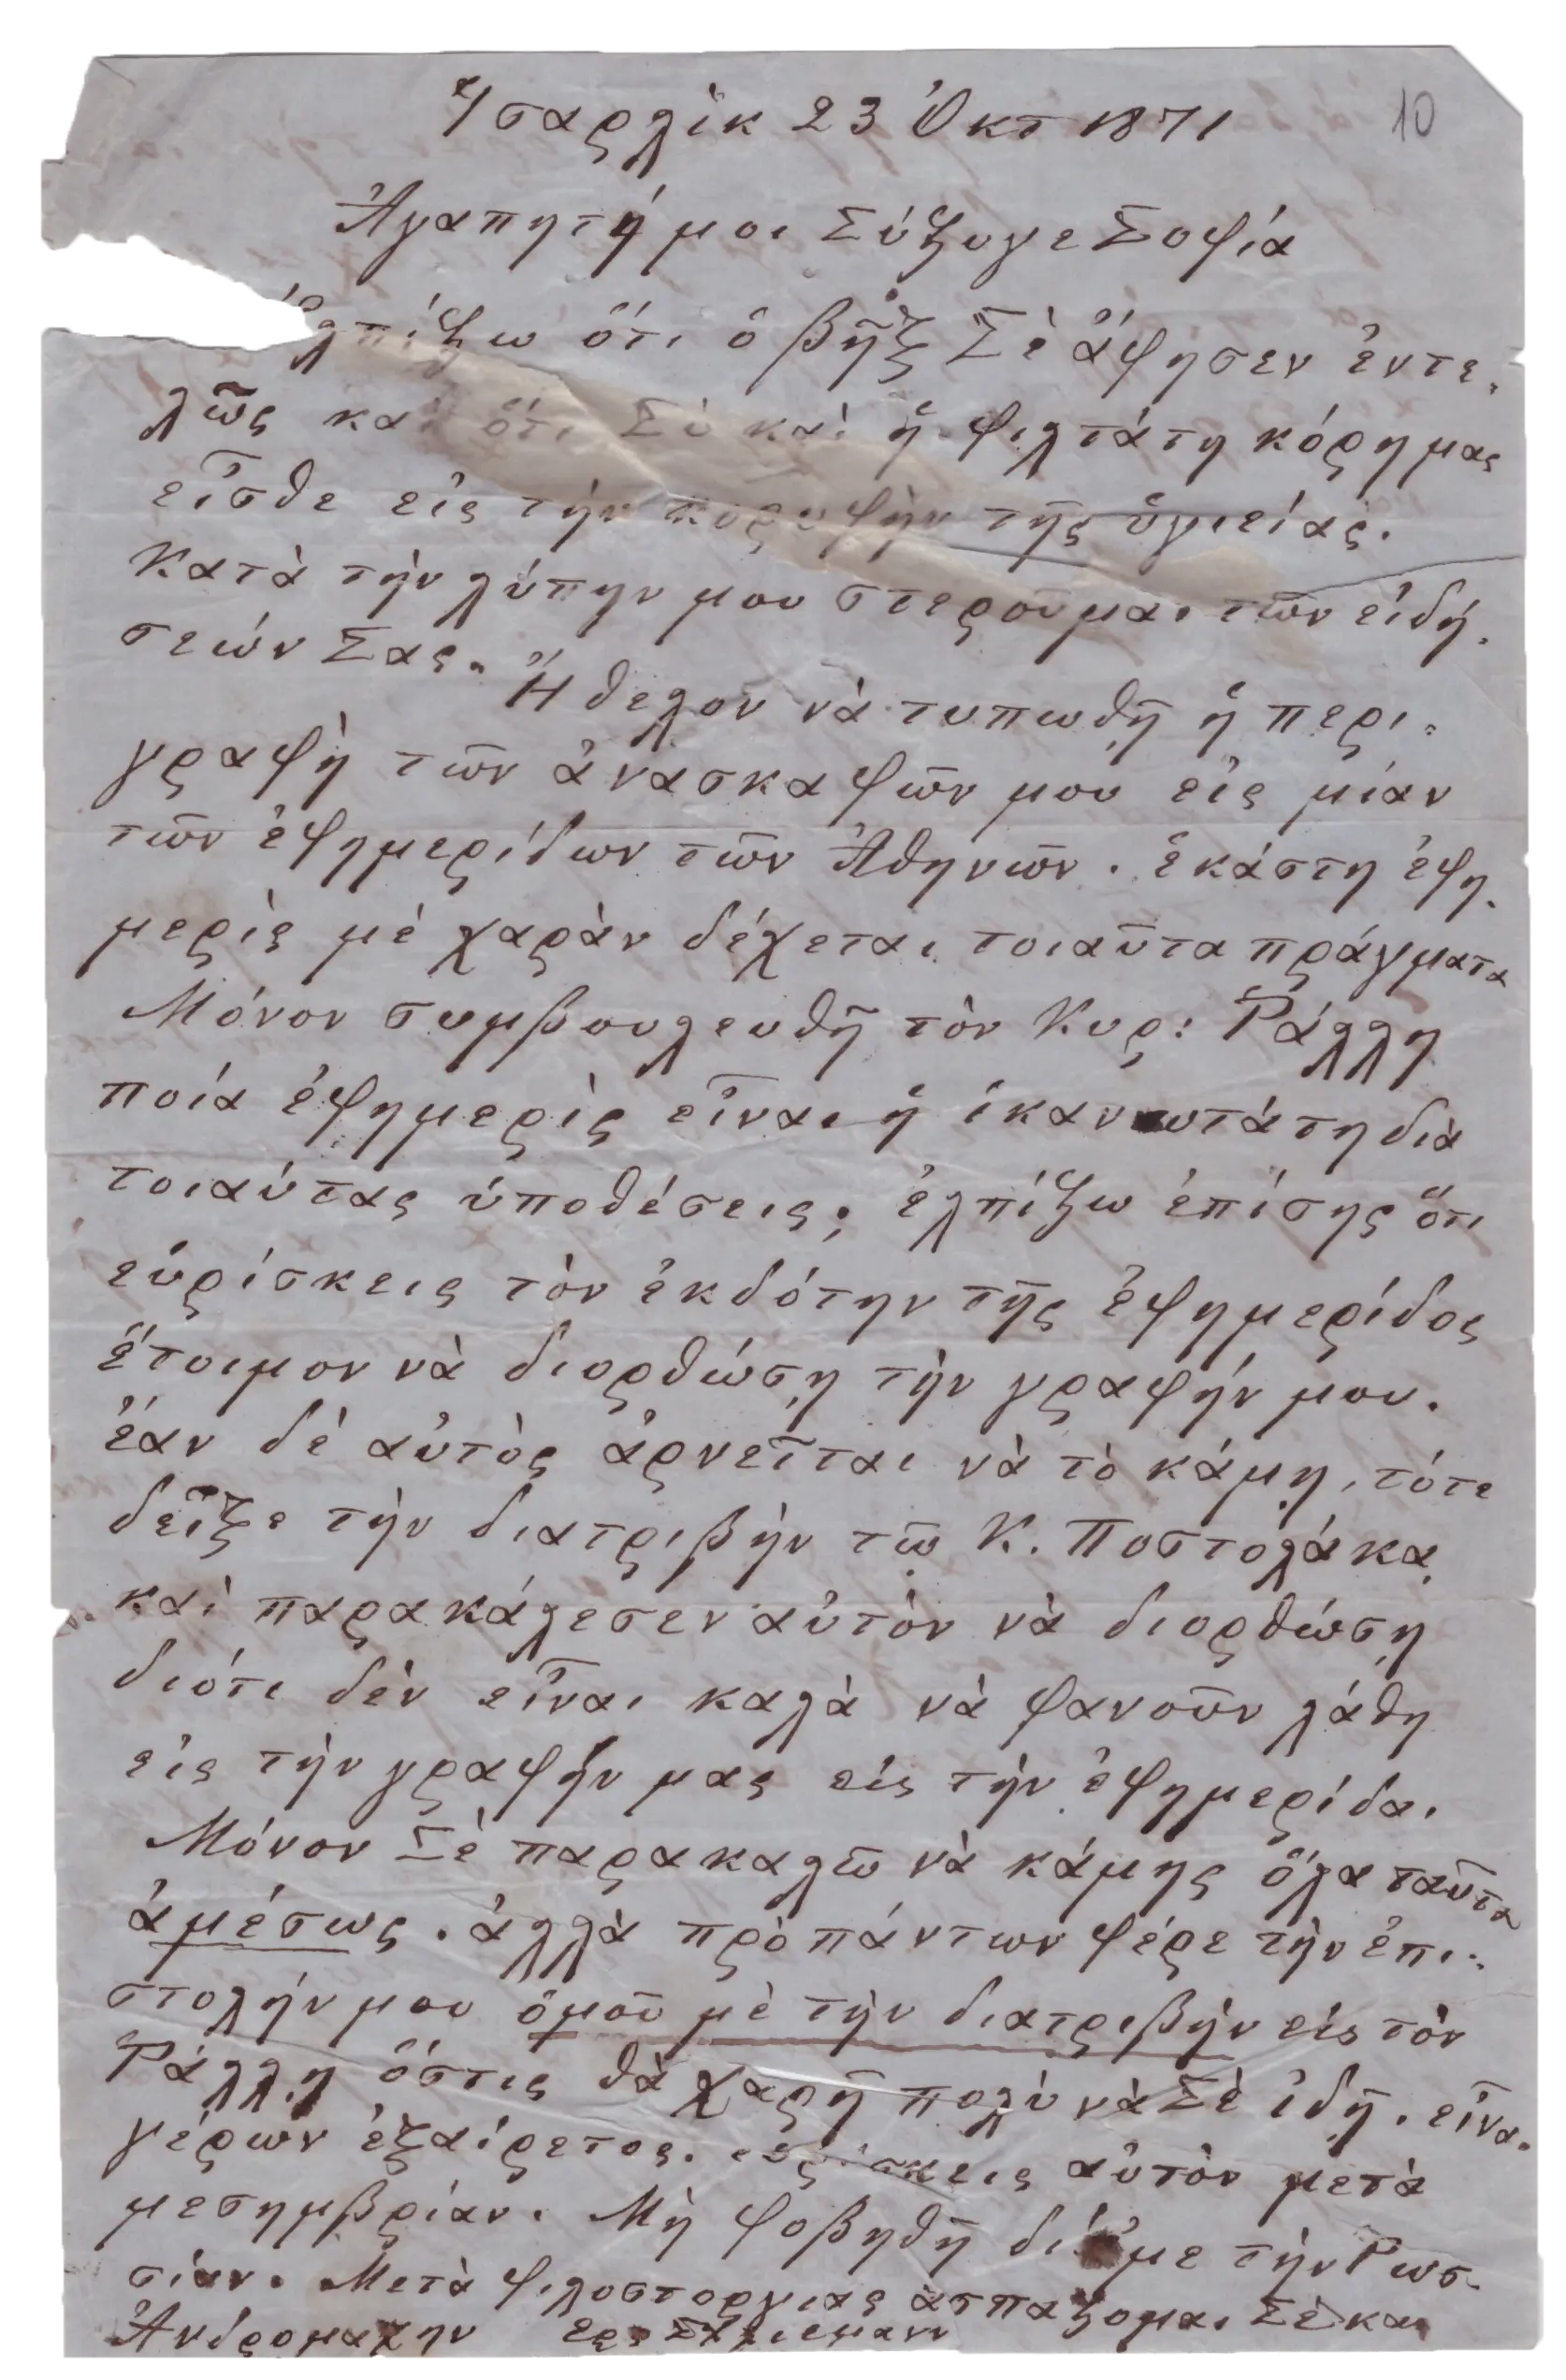 Ἱσαρλὶκ 23 Ὀκτ 1871
10
Ἀγαπητή μοι Σύζυγε Σοφία
Ἐλπίζω ὅτι ὁ βῆξ Σὲ ἄφησεν ἐντε-
λῶς καὶ ὅτι Σὺ καὶ ἡ φιλτάτη κόρη μας
εἶσθε εἰς τὴν κορυφὴν τῆς ὑγιείας.
Κατὰ τὴν λύπην μου στεροῦμαι τῶν εἰδή-
σεών Σας. Ἤθελον νὰ τυπωθῇ ἡ περι-
γραφὴ τῶν ἀνασκαφῶν μου εἰς μίαν
τῶν ἐφημερίδων τῶν Ἀθηνῶν. ἑκάστη ἐφη-
μερὶς μὲ χαρὰν δέχεται τοιαῦτα πράγματα
Μόνον συμβουλευθῇ τὸν Κυρ: Ῥάλλη
ποία ἐφημερὶς εἶναι ἡ ἱκανωτάτη διὰ
τοιαύτας ὑποθέσεις; ἐλπίζω ἐπίσης ὅτι
εὑρίσκεις τὸν ἐκδότην τῆς ἐφημερίδος
ἕτοιμον νὰ διορθώσῃ τὴν γραφήν μου.
ἐάν δὲ αὐτὸς ἀρνεῖται νὰ τὸ κάμῃ, τότε
δεῖξε τὴν διατριβὴν τῷ Κ. Ποστολάκᾳ
καὶ παρακάλεσεν αὐτὸν νὰ διορθώσῃ
διότι δὲν εἶναι καλὰ νὰ φανοῦν λάθη
εἰς τὴν γραφήν μας εἰς τὴν ἐφημερίδα.
Μόνον Σὲ παρακαλῶ νὰ κάμῃς ὅλα ταῦτα
ἀμέσως. ἀλλὰ πρὸ πάντων φέρε τὴν ἐπι-
στολήν μου ὁμοῦ μὲ τὴν διατριβὴν εἰς τὸν
Ῥάλλη ὅστις θὰ χαρῇ πολὺ νὰ Σὲ ἰδῇ. εἶναι
γέρων ἐξαίρετος. εὑρίσκεις αὐτὸν μετὰ
μεσημβρίαν. Μὴ φοβηθῇ δι' ἐμε τὴν Ρωσ-
σίαν. Μετὰ φιλοστοργίας ἀσπάζομαι Σὲ καὶ
Ἀνδρομάχην Ερ. Σχλιεμανν